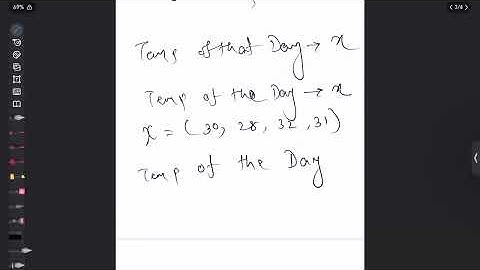 69%
3/4
Temp of that Day → x
Temp of the Day → x
x = (30, 28, 32, 31)
Temp of the Day